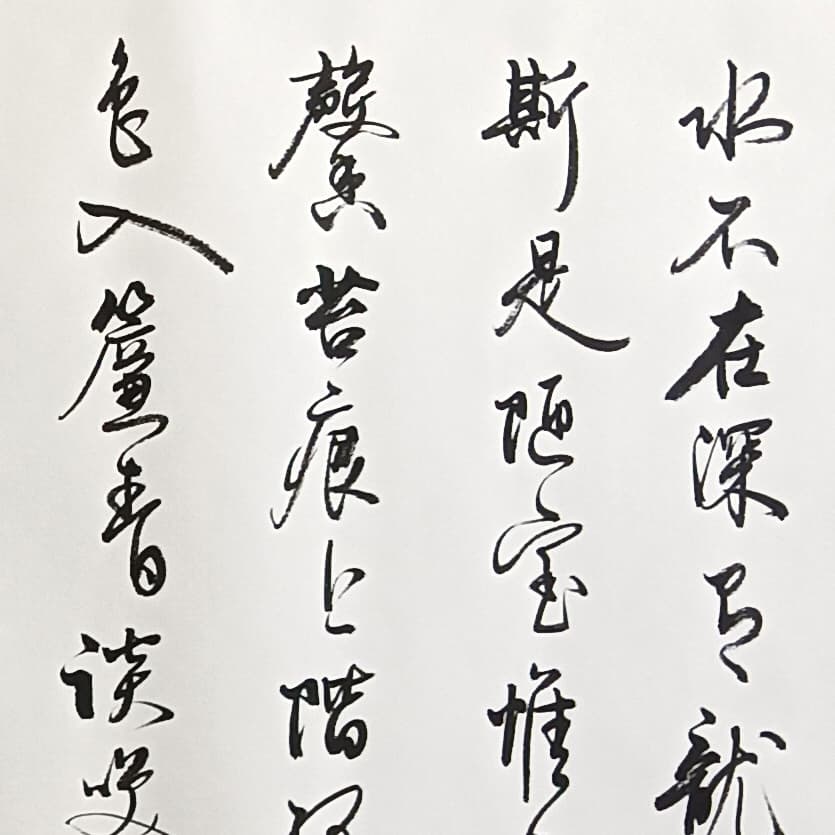 水不在深有龍
斯是陋室惟
馨苔痕上階
色入簾青談笑